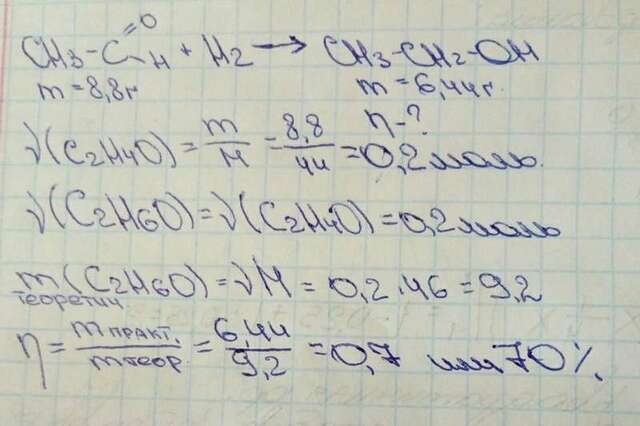 CH3-C=O-H + H2 → CH3-CH2-OH
m=8,8г m=6,44г.
η-?
ν(C2H4O) = m/M = 8,8/44 = 0,2 моль.
ν(C2H6O) = ν(C2H4O) = 0,2 моль
m теоретич. (C2H6O) = νM = 0,2·46 = 9,2
η = m практ./m теор. = 6,44/9,2 = 0,7 или 70%.